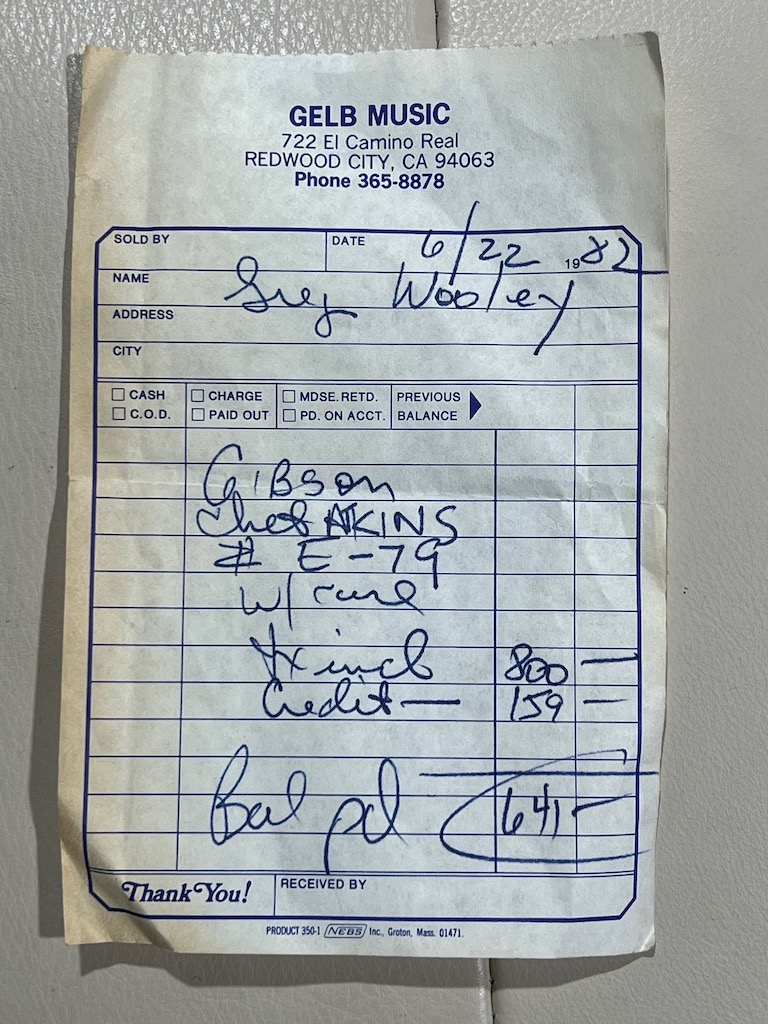 GELB MUSIC
722 El Camino Real
REDWOOD CITY, CA 94063
Phone 365-8878
SOLD BY DATE 6/22 1982
NAME Greg Wooley
ADDRESS
CITY
CASH CHARGE MDSE. RETD. PREVIOUS
C.O.D. PAID OUT PD. ON ACCT. BALANCE
GIBSON
Chet ATKINS
# E-79
w/ case
tx incl 800 —
Credit — 159 —
Bal pd 641 —
Thank You! RECEIVED BY
PRODUCT 350-1 NEBS Inc., Groton, Mass. 01471.